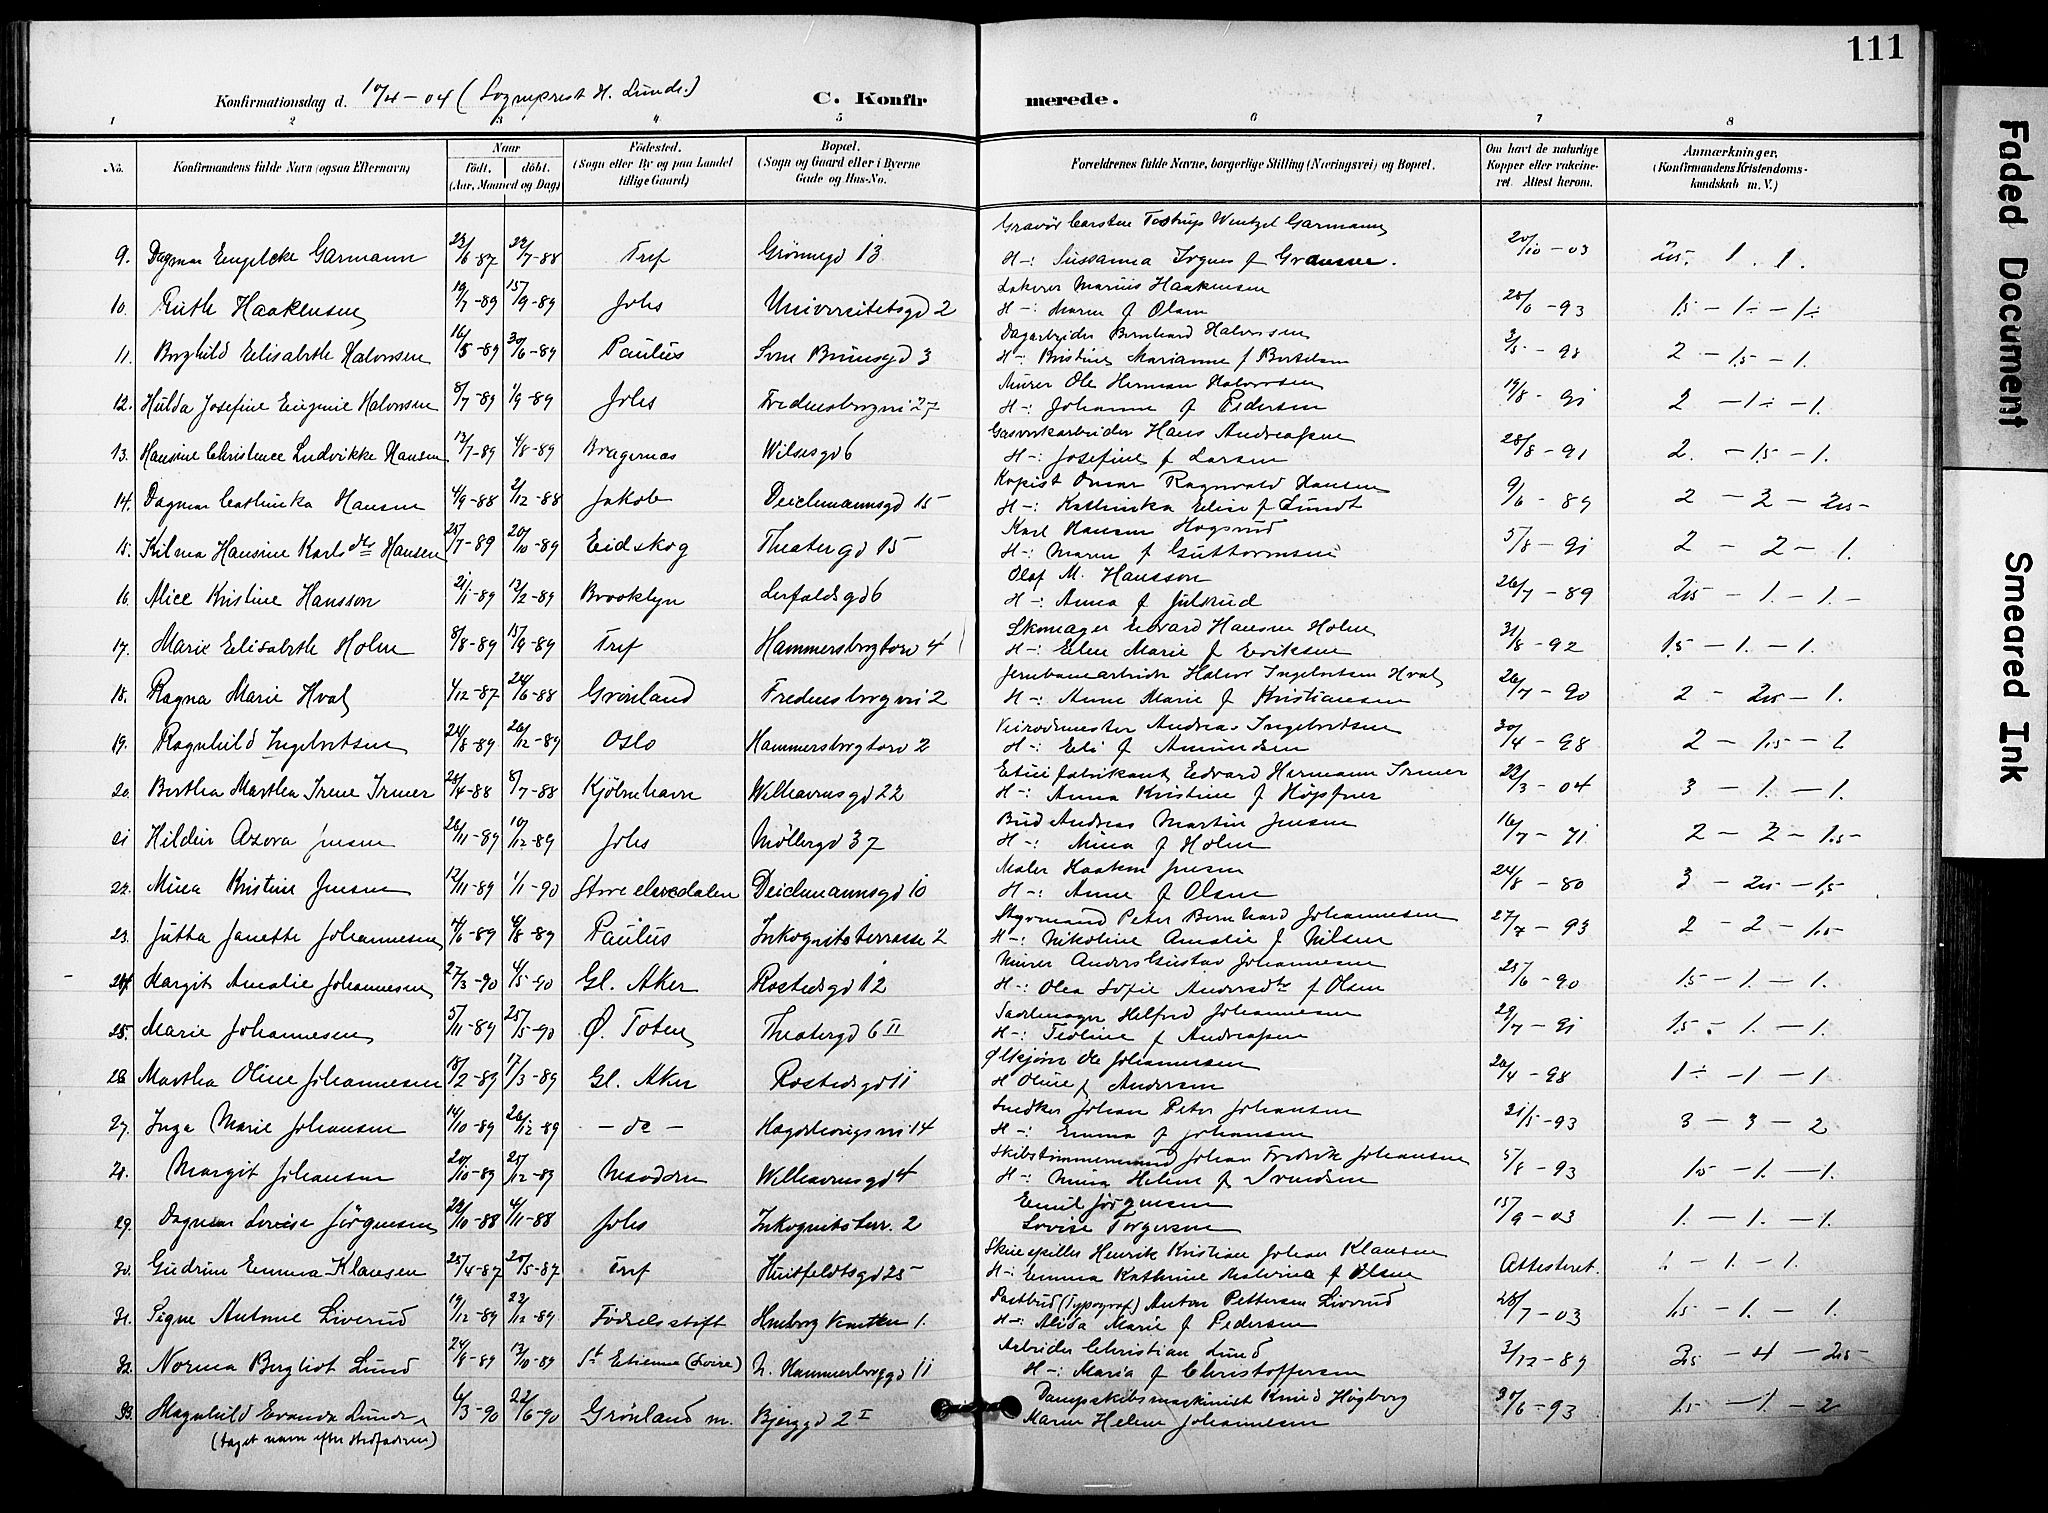 111
Konfirmationsdag d. 10/4 - 04 (Sogneprest H. Lunde.) C. Konfirmerede.
1 2 3 4 5 6 7 8
No. Konfirmandens fulde Navn (ogsaa Efternavn) Naar født, døbt. (Aar, Maaned og Dag) Fødested. (Sogn eller By og paa Landet tillige Gaard) Bopæl. (Sogn og Gaard eller i Byerne Gade og Hus-No. Forældrenes fulde Navne, borgerlige Stilling (Næringsvei) og Bopæl. Om havt de naturlige Kopper eller vakcineret. Attest herom. Anmærkninger. (Konfirmandens Kristendomskundskab m. V.)
Gravør Carsten Tostrup Wentzel Garmann
9. Dagmar Engelcke Garmann 22/6-87 22/7-88 Tref Grønnegd 13 H-: Sussanna f 20/10-03 2,5. 1. 1.
Lakerer Marius Haakensen
10. Ruth Haakensen 19/7-89 15/9-89 Johs Universitetsgd 2 H-: Maren f Olsen -93 1,5 - 1÷ - 1÷
Dagarbeider Bernhard Halvorsen
11. Borghild Elisabeth Halvorsen 16/5-89 30/6-89 Paulus Sven Brunsgd 3 H-: Kristine Marianne f Bertelsen 3/5-98 2 - 1,5 - 1.
Murer Ole Herman Halvorsen
12. Hulda Josefine Eugenie Halvorsen 8/7-89 1/9-89 Johs Fredensborgvei 27 H-: Johanne f Pedersen 19/8-91 2 - 1÷ - 1.
Gasverkarbeider Hans Andreassen
13. Hansine Christence Ludvikke Hansen 13/7-89 4/8-89 Bragernæs Wilsesgd 6 H-: Josefine f Larsen 28/8-91 2. - 1,5 - 1.
Kopist Omar Ragnvald Hansen
14. Dagmar Cathinka Hansen 4/9-88 2/12-88 Jakob Deichmannsgd 15 H-: Kathinka Elise f Lundt 9/6-89 2 - 2 - 2,5 -
Karl Hansen Hogsrud
15. Kilma Hansine Karlsdtr Hansen 25/7-89 20/10-89 Eidskog Theatergd 15 H-: Maren f Guttormsen 5/8-91 2 - 2 - 1.
Olaf M. Hansson
16. Alice Kristine Hansson 21/1-89 13/2-89 Brooklyn Lerfaldsgd 6 H-: Anna f Julsrud 26/7-89 2,5 - 1. - 1. -
Skomager Edvard Hansen Holm
17. Marie Elisabeth Holm 8/8-89 15/9-89 Tref Hammersborgtorv 4 H-: Elen Marie f Eriksen 31/8-92 1,5 - 1. - 1.
Jernbanearbeider Halvor Ingebretsen Hval
18. Ragna Marie Hval 4/12-87 24/6-88 Grønland Fredensborgvei 2 H-: Anne Marie f Kristiansen 26/7-90 2 - 2,5 - 1.
Veirodemester Andreas Ingebretsen
19. Ragnhild Ingebretsen 24/8-89 26/12-89 Oslo Hammersborgtorv 2 H-: Eli f Amundsen 30/4-98 2 - 1,5 - 2
Etuifabrikant Edvard Hermann Irmer
20. Bertha Martha Irene Irmer 28/4-88 8/7-88 Kjøbenhavn Welhavensgd 22 H-: Anna Kristine f Høpfner 22/3-04 3 - 1. - 1.
Bud Andreas Martin Jensen
21 Hildur Asora Jensen 26/11-89 10/12-89 Johs Møllergd 37 H-: Mina f Holm 16/7-91 2 - 2 - 1,5 -
Maler Haakon Jensen
22. Mina Kristine Jensen 12/11-89 1/1-90 Store elvedalen Deichmannsgd 10 H-: Anne f Olsen 24/8-80 3 - 2,5 - 1,5
Styrmand Peter Bernhard Johannesen
23. Jutta Janette Johannesen 4/6-89 4/8-89 Paulus Inkognitoterrasse 2 H-: Nikoline Amalie f Nilsen 27/7-93 2 - 2 - 1,5
Murer Anders Gustav Johannesen
24. Margit Amalie Johannesen 27/3-90 4/5-90 Gl. Aker Rostedsgd 12 H-: Olea Sofie Andersdtr f Olsen 25/6-90 1,5 - 1. - 1.
Sadelmager Helfred Johannesen
25. Marie Johannesen 5/11-89 25/5-90 Ø. Toten Theatergd 6 II H-: Teoline f Andreassen 29/7-91 1,5 - 1. - 1.
Ølkjører Ole Johannesen
26 Martha Oline Johannesen 18/2-89 17/3-89 Gl. Aker Rostedsgd 11 H Oline f Andersen 20/4-98 1÷ - 1 - 1
Snedker Johan Peter Johansen
27. Inga Marie Johansen 14/10-89 26/12-89 - do - Hægdehaugsvei 14 H-: Emma f Johansen 21/5-93 3 - 3 - 2
Skibstømmermand Johan Fredrik Johansen
28. Margit Johansen 20/10-89 25/12-89 Mosodden Welhavensgd 4 H-: Mina Helene f Svendsen 5/8-93 1,5 - 1. - 1.
Emil Jørgensen
29. Dagmar Lovise Jørgensen 22/10-88 4/11-88 Johs Inkognitoterr. 2 Lovise Torgersen 15/9-03 1. - 1. - 1.
Skuespiller Henrik Kristian Johan Klausen
30. Gudrun Emma Klausen 25/4-87 20/5-87 Tref Huitfeldtsgd 25 H-: Emma Kathrine Malvina f Olsen Attesteret. 1. - 1. - 1.
Postbud (Typograf) Anton Pettersen Liverud
31. Signe Antonie Liverud 19/12-89 23/12-89 Fødselsstift 1. H-: Alida Marie f Pedersen 28/7-03 1,5 - 1. - 1.
Arbeider Christian Lund
32. Norma Bergliot Lund 24/8-89 13/10-89 St Etienne (Loire) N. Hammersborggd 11 H-: Maria f Christoffersen 3/12-89 2,5 - 4 - 2,5 -
Dampskibsmaskinist Knud Høgberg
33. Magnhild Evanda Lunde 6/3-90 22/6-90 Grønland m. Bjerggd 2 I Maren Helene Johannesen 30/6-93 1,5 - 1. - 2
(taget navn efter stedfaderen)
Faded Document
Smeared Ink